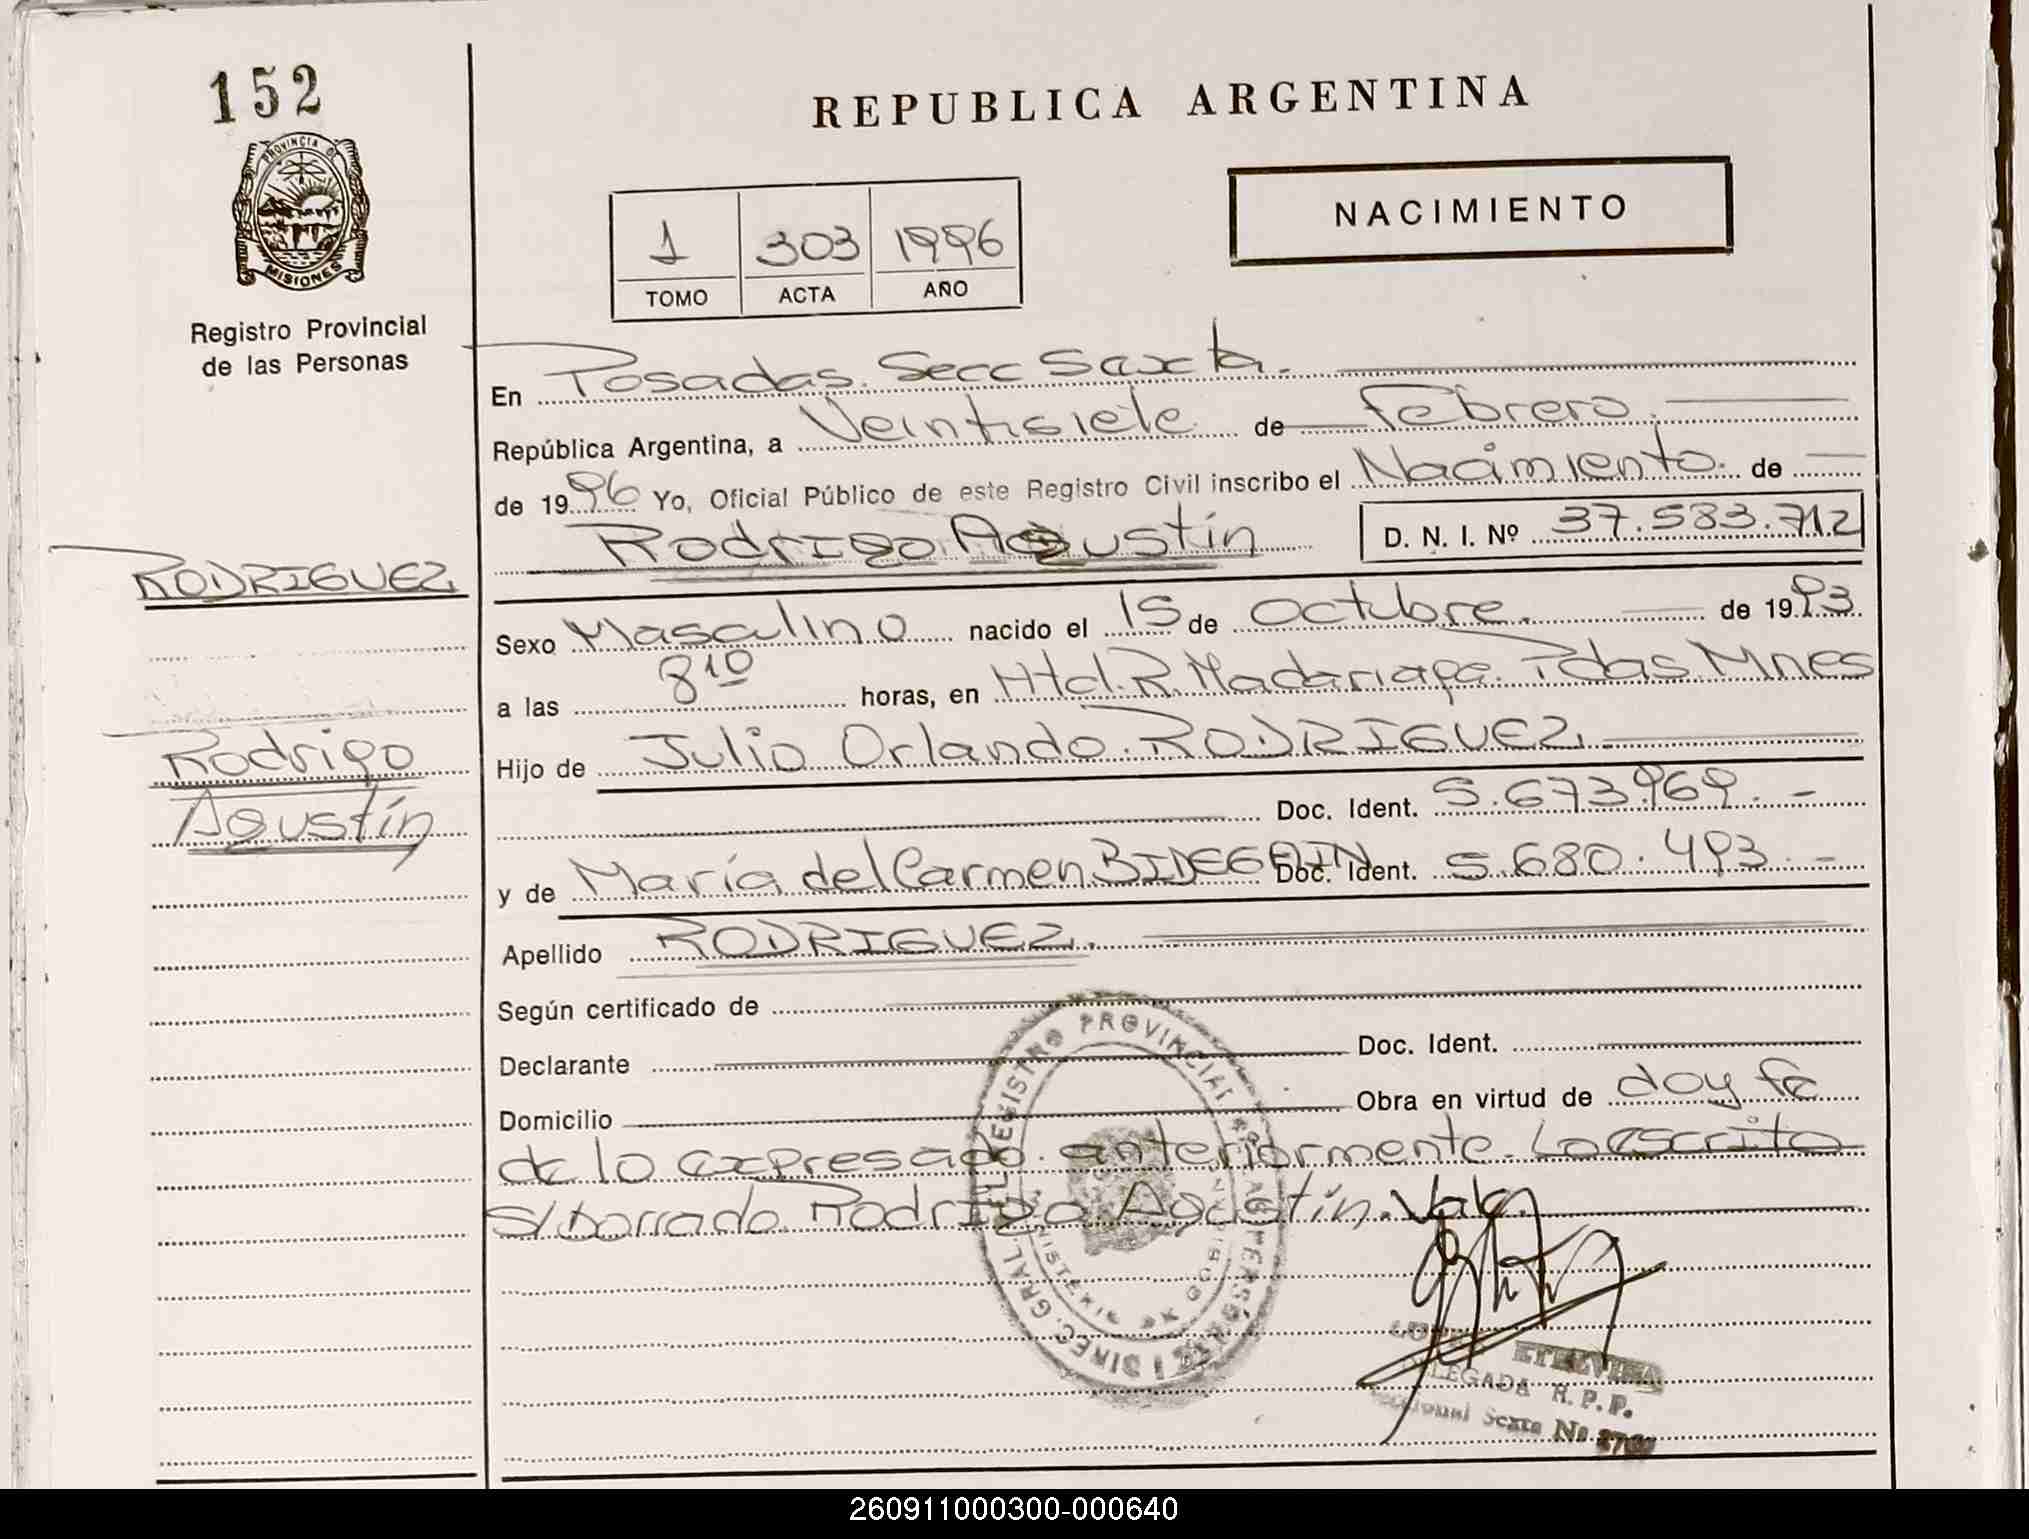 152
PROVINCIA D
MISIONES
Registro Provincial
de las Personas
REPUBLICA ARGENTINA
NACIMIENTO
1 303 1996
TOMO ACTA AÑO
En Posadas. Secc Sexta.
República Argentina, a Veintisiete de Febrero.
de 1996 Yo, Oficial Público de este Registro Civil inscribo el Nacimiento. de
Rodrigo Agustín D. N. I. Nº 37.583.712
RODRIGUEZ
Rodrigo
Agustín
Sexo Masculino nacido el 15 de Octubre. de 1993.
a las 8 10 horas, en Htal. R. Madariaga. Pdas Mnes
Hijo de Julio Orlando. RODRIGUEZ.
Doc. Ident. 5.673.969.-
y de María del Carmen BIDEGAIN Doc. Ident. 5.680.493.-
Apellido RODRIGUEZ.
Según certificado de
Declarante Doc. Ident.
Domicilio Obra en virtud de doy fé
de lo expresado anteriormente. Lo escrito
s/borrado. Rodrigo Agustín. Vale.
DIREC. GRAL. DEL REGISTRO PROVINCIAL DE LAS PERSONAS
MINISTERIO DE GOBIERNO
ETELVINA
DELEGADA R. P. P.
Seccional Sexta No
260911000300-000640